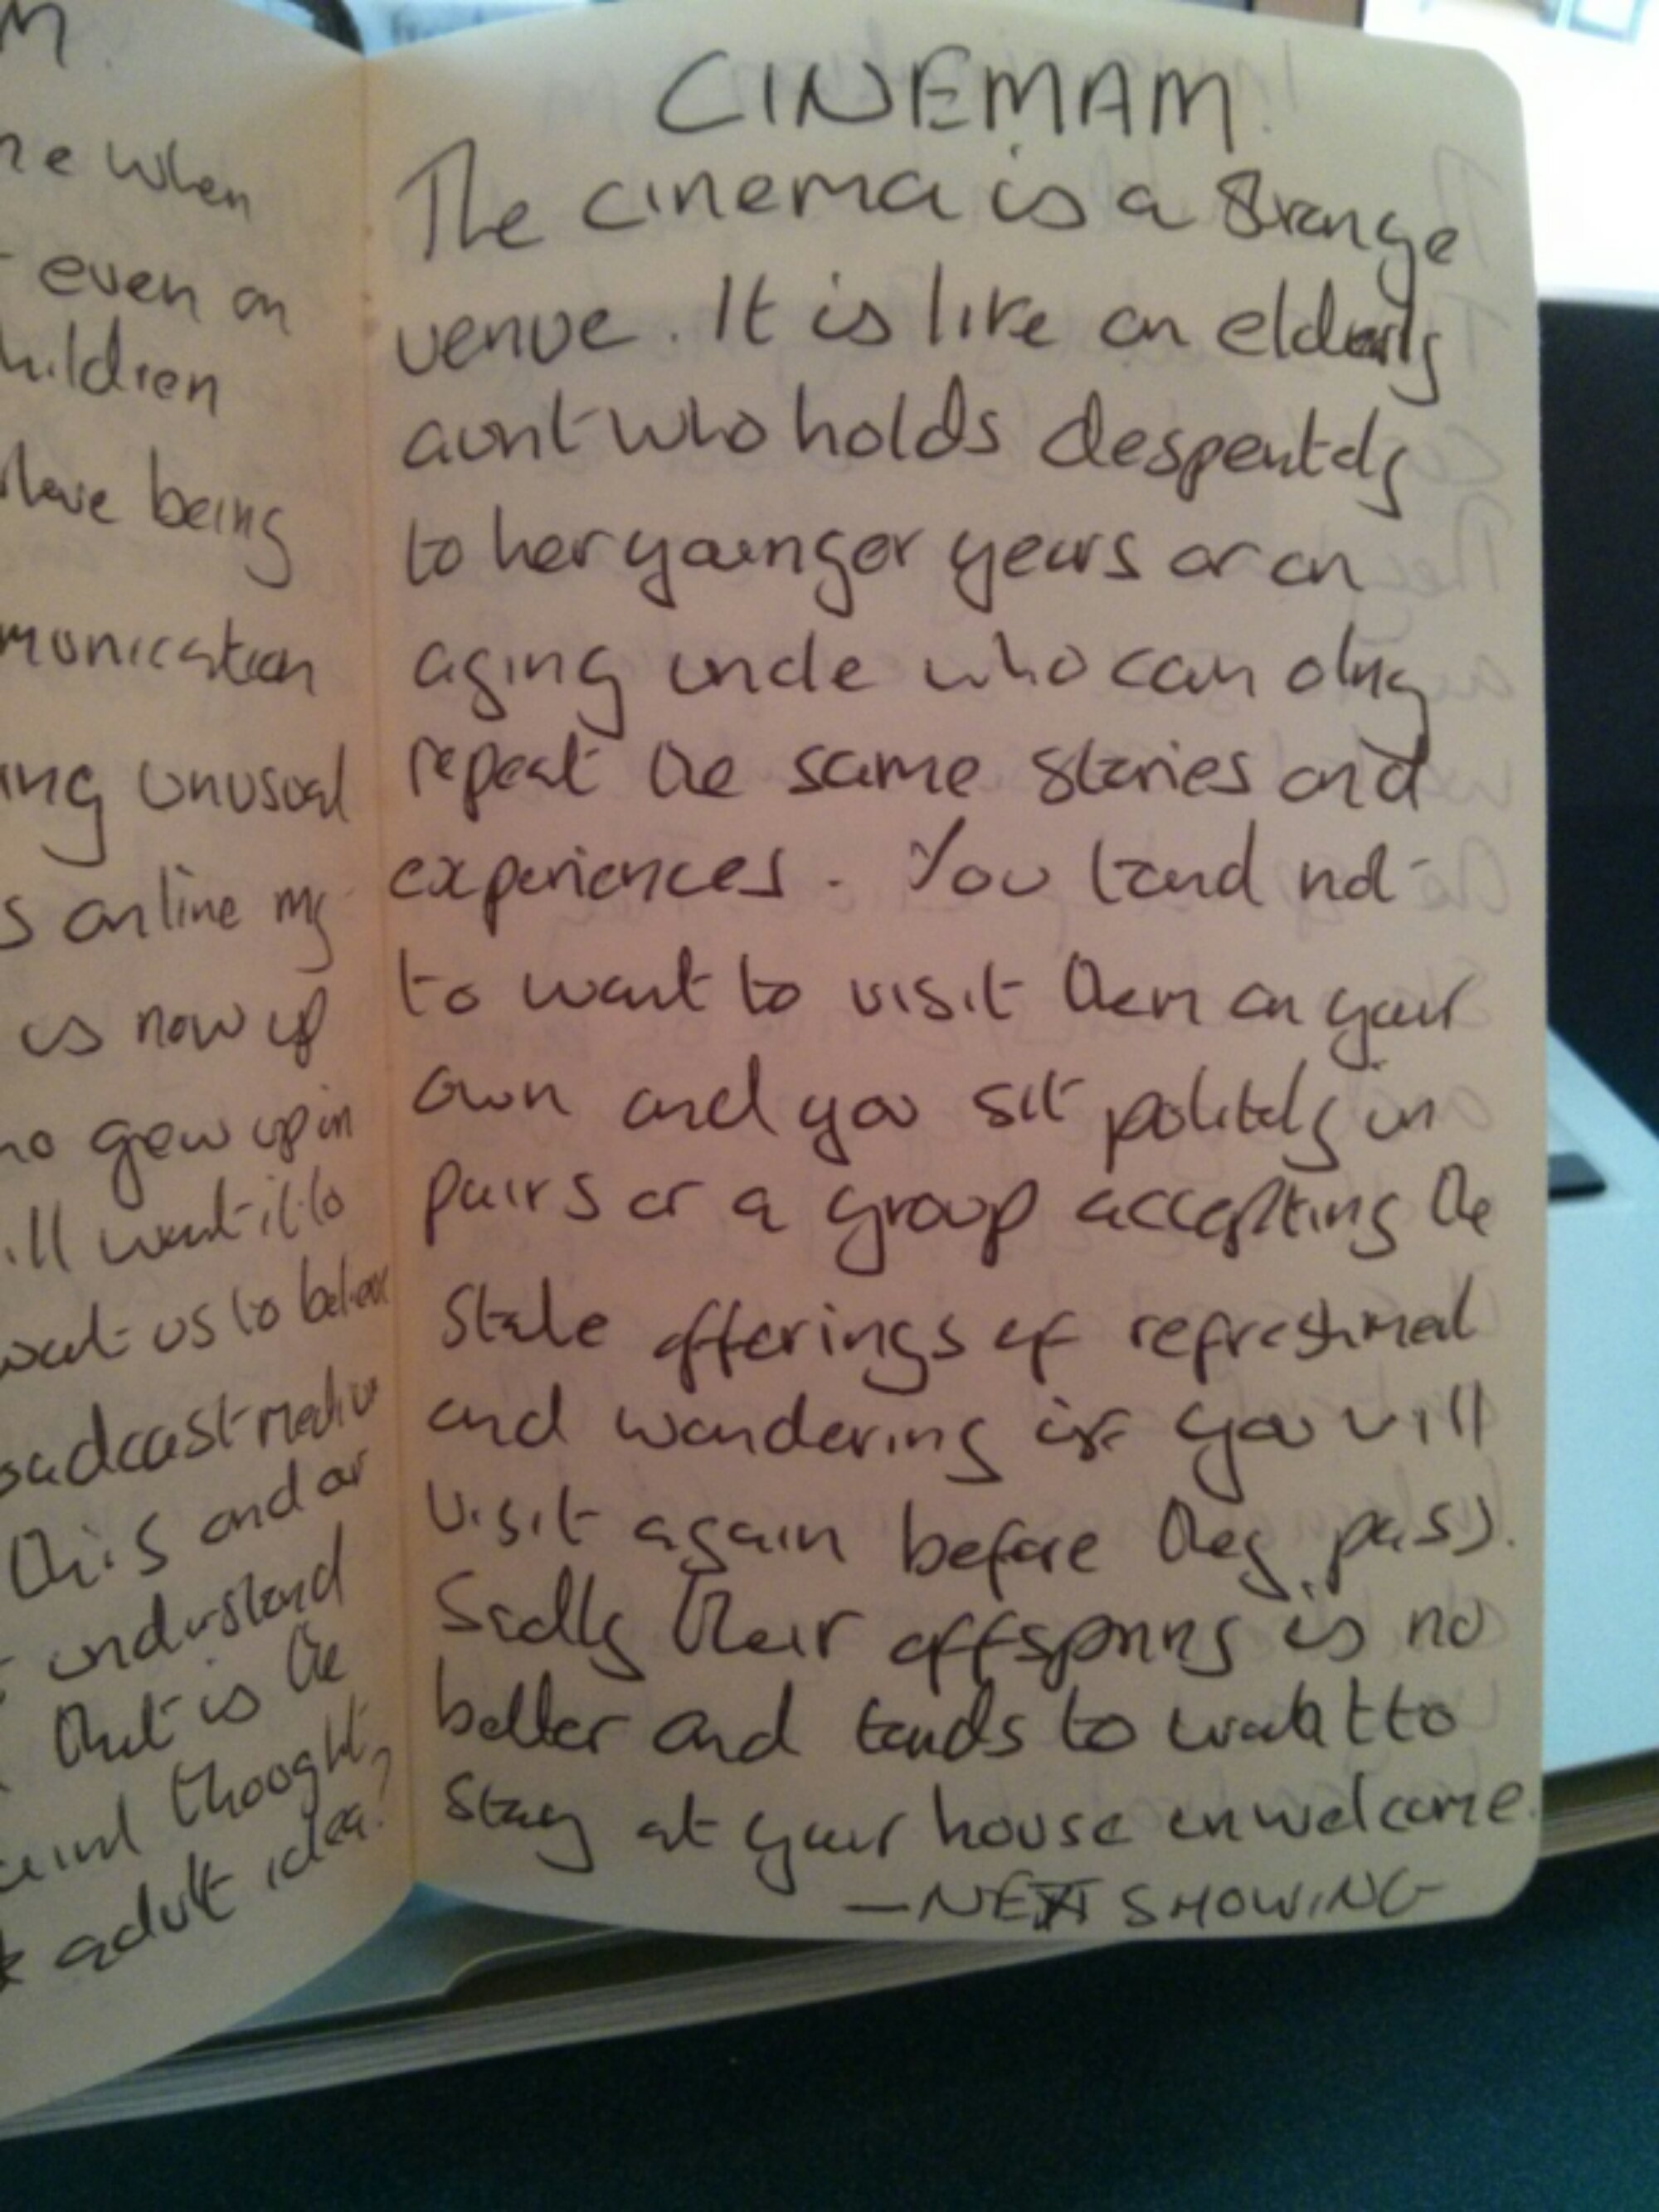 M.
when
even on
children
being
unusual
s online my
us now if
no grew up in
ill want it to
want us to believe
this and or
understand
that is the
thought,
adult idea?
CINEMAM.
The cinema is a Strange
venue. It is like an elderly
aunt who holds desperately
to her younger years or an
aging uncle who can olny
repeat the same stories and
experiences. You tend not
to want to visit them on your
own and you sit politely in
pairs or a group accepting the
Stale offerings of refreshment
and wondering if you will
visit again before they pass.
Sadly their offspring is no
better and tends to want to
stay at your house unwelcome.
—NEXT SHOWING